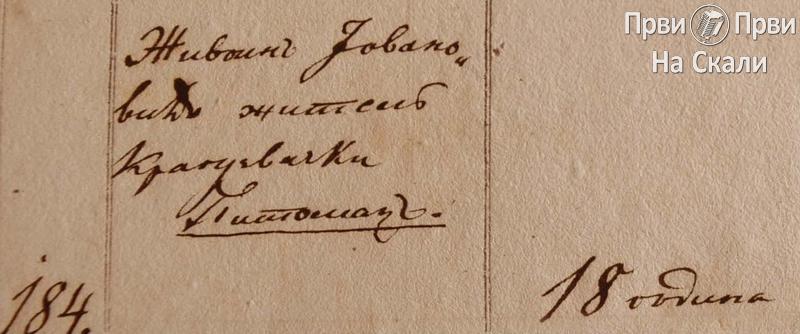 Први Први
На Скали
Живоинъ Јовано„
вићъ житељ
Крагуевачки
Питомацъ.
184.
18 година